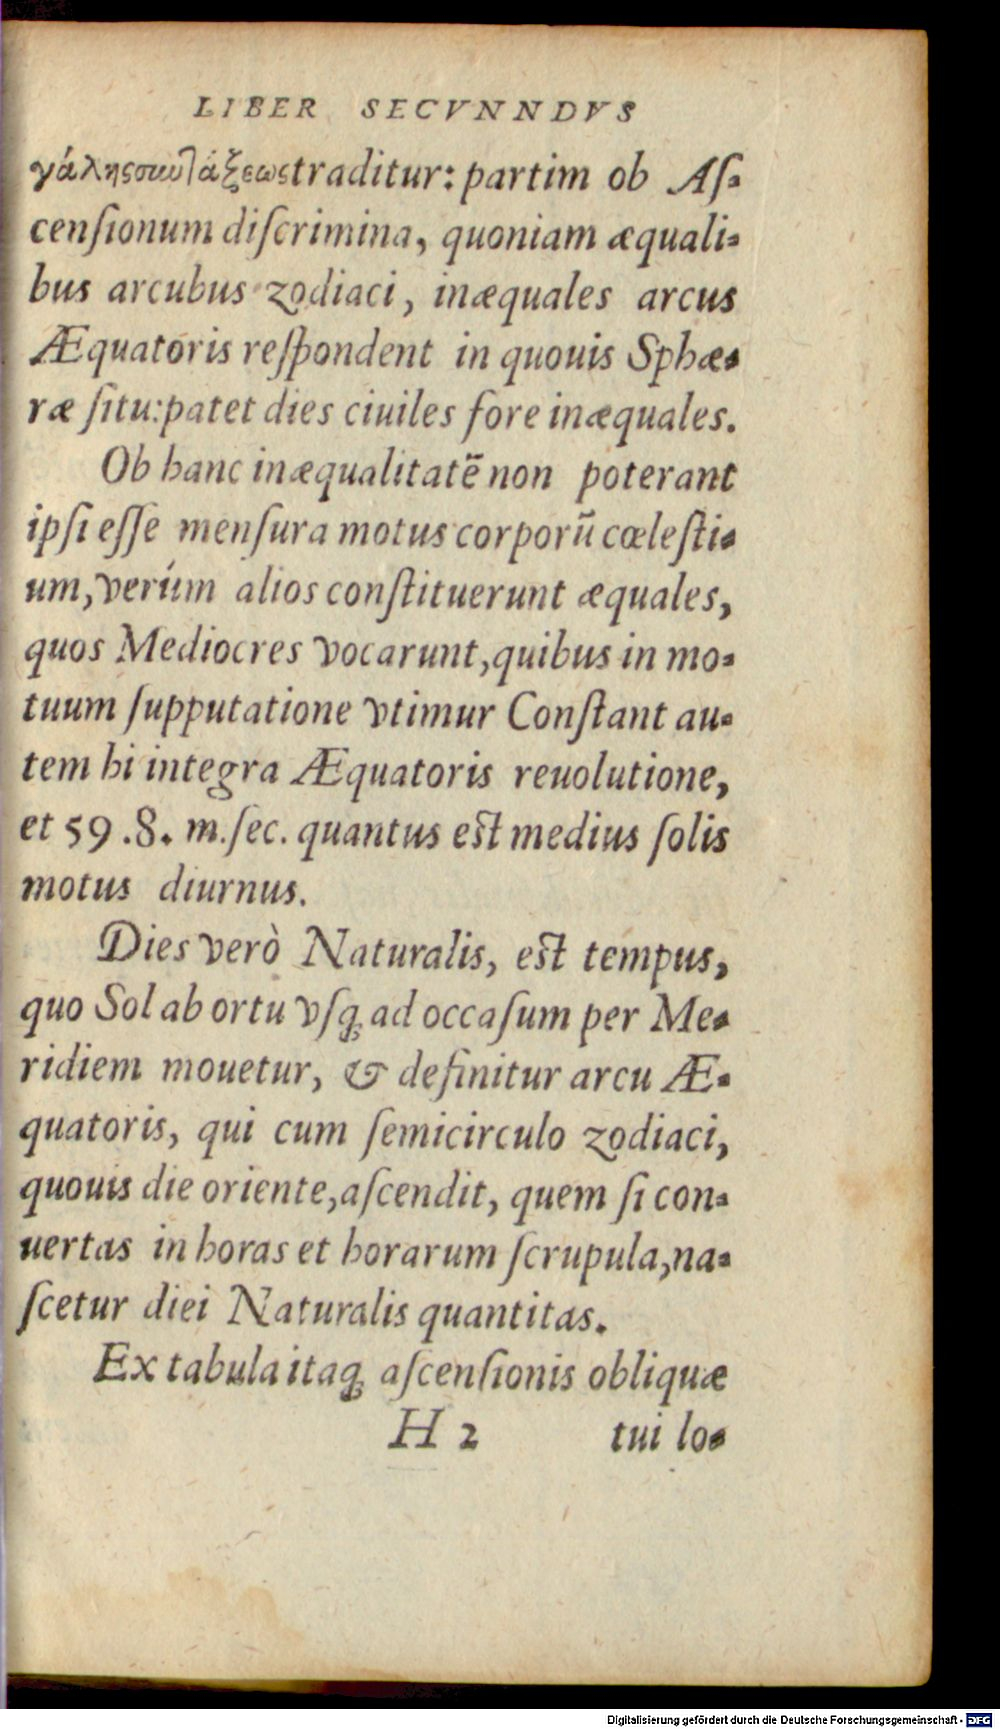 LIBER SECVNNDVS
γάλης συντάξεως traditur: partim ob Aſ-
cenſionum diſcrimina, quoniam æquali-
bus arcubus zodiaci, inæquales arcus
Æquatoris reſpondent in quouis Sphæ-
ræ ſitu: patet dies ciuiles fore inæquales.
Ob hanc inæqualitatē non poterant
ipſi eſſe menſura motus corporū cœleſti-
um, verúm alios conſtituerunt æquales,
quos Mediocres vocarunt, quibus in mo-
tuum ſupputatione vtimur Conſtant au-
tem hi integra Æquatoris reuolutione,
et 59.8. m. ſec. quantus eſt medius ſolis
motus diurnus.
Dies verò Naturalis, eſt tempus,
quo Sol ab ortu vſq; ad occaſum per Me-
ridiem mouetur, & definitur arcu Æ-
quatoris, qui cum ſemicirculo zodiaci,
quouis die oriente, aſcendit, quem ſi con-
uertas in horas et horarum ſcrupula, na-
ſcetur diei Naturalis quantitas.
Ex tabula itaq; aſcenſionis obliquæ
H 2 tui lo-
Digitalisierung gefördert durch die Deutsche Forschungsgemeinschaft - DFG